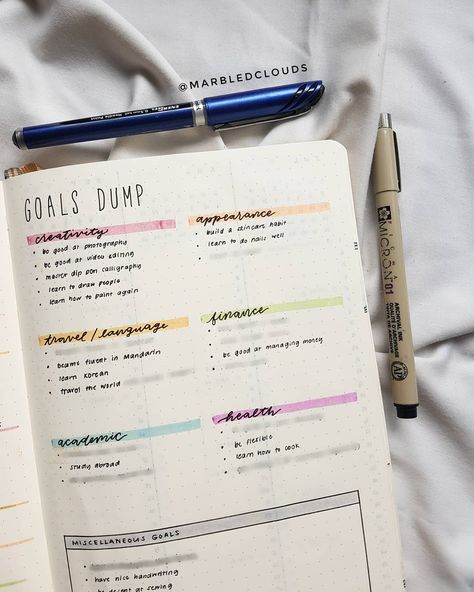 @MARBLEDCLOUDS
GOALS DUMP
creativity
• be good at photography
• be good at video editing
• master dip pen calligraphy
• learn to draw people
• learn how to paint again
appearance
• build a skincare habit
• learn to do nails well
travel / language
• became fluent in Mandarin
• learn Korean
• travel the world
finance
• be good at managing money
academic
• study abroad
health
• be flexible
• learn how to cook
MISCELLANEOUS GOALS
• have nice handwriting
• be decent at sewing
MICRON 01
ARCHIVAL INK